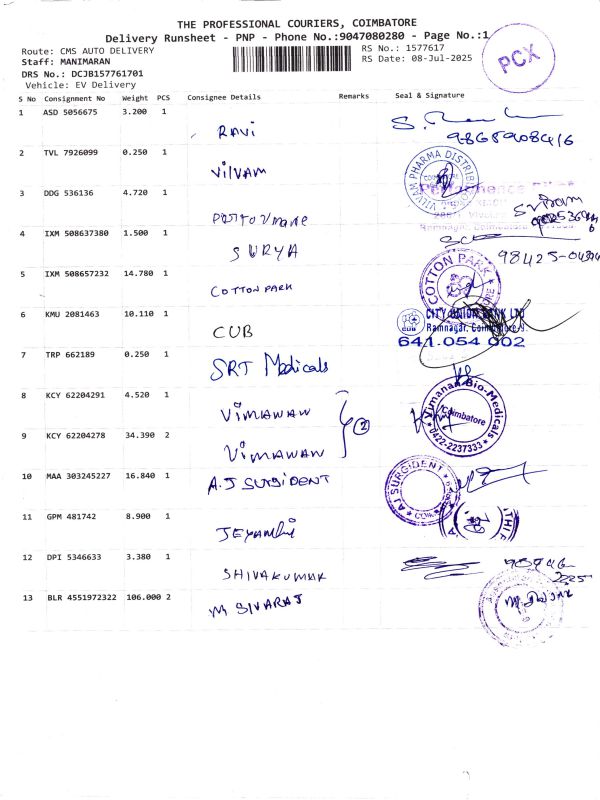 THE PROFESSIONAL COURIERS, COIMBATORE
Delivery Runsheet - PNP - Phone No.:9047080280 - Page No.:1
Route: CMS AUTO DELIVERY
RS No.: 1577617
Staff: MANIMARAN
RS Date: 08-Jul-2025
DRS No.: DCJB157761701
Vehicle: EV Delivery
PCX
S No Consignment No Weight PCS Consignee Details Remarks Seal & Signature
1 ASD 5056675 3.200 1
RAVi
2 TVL 7926099 0.250 1
ViLVAM
VILVAM PHARMA DISTRIB
3 DDG 536136 4.720 1
4 IXM 508637380 1.500 1
SURYA
5 IXM 508657232 14.780 1
COTTON PARK
COTTON PARK
6 KMU 2081463 10.110 1
CUB
CITY UNION BANK LTD
Ramnagar, Coimbatore-9.
641.054 002
7 TRP 662189 0.250 1
SRT Medicals
8 KCY 62204291 4.520 1
ViMAWAN
2
Vimanan Bio-Medicals
Coimbatore
0422-2237333
9 KCY 62204278 34.390 2
ViMAWAN
10 MAA 303245227 16.840 1
A.J SURGIDENT
A.J SURGIDENT
11 GPM 481742 8.900 1
12 DPI 5346633 3.380 1
SHIVAKUMAR
13 BLR 4551972322 106.000 2
M SIVARAJ